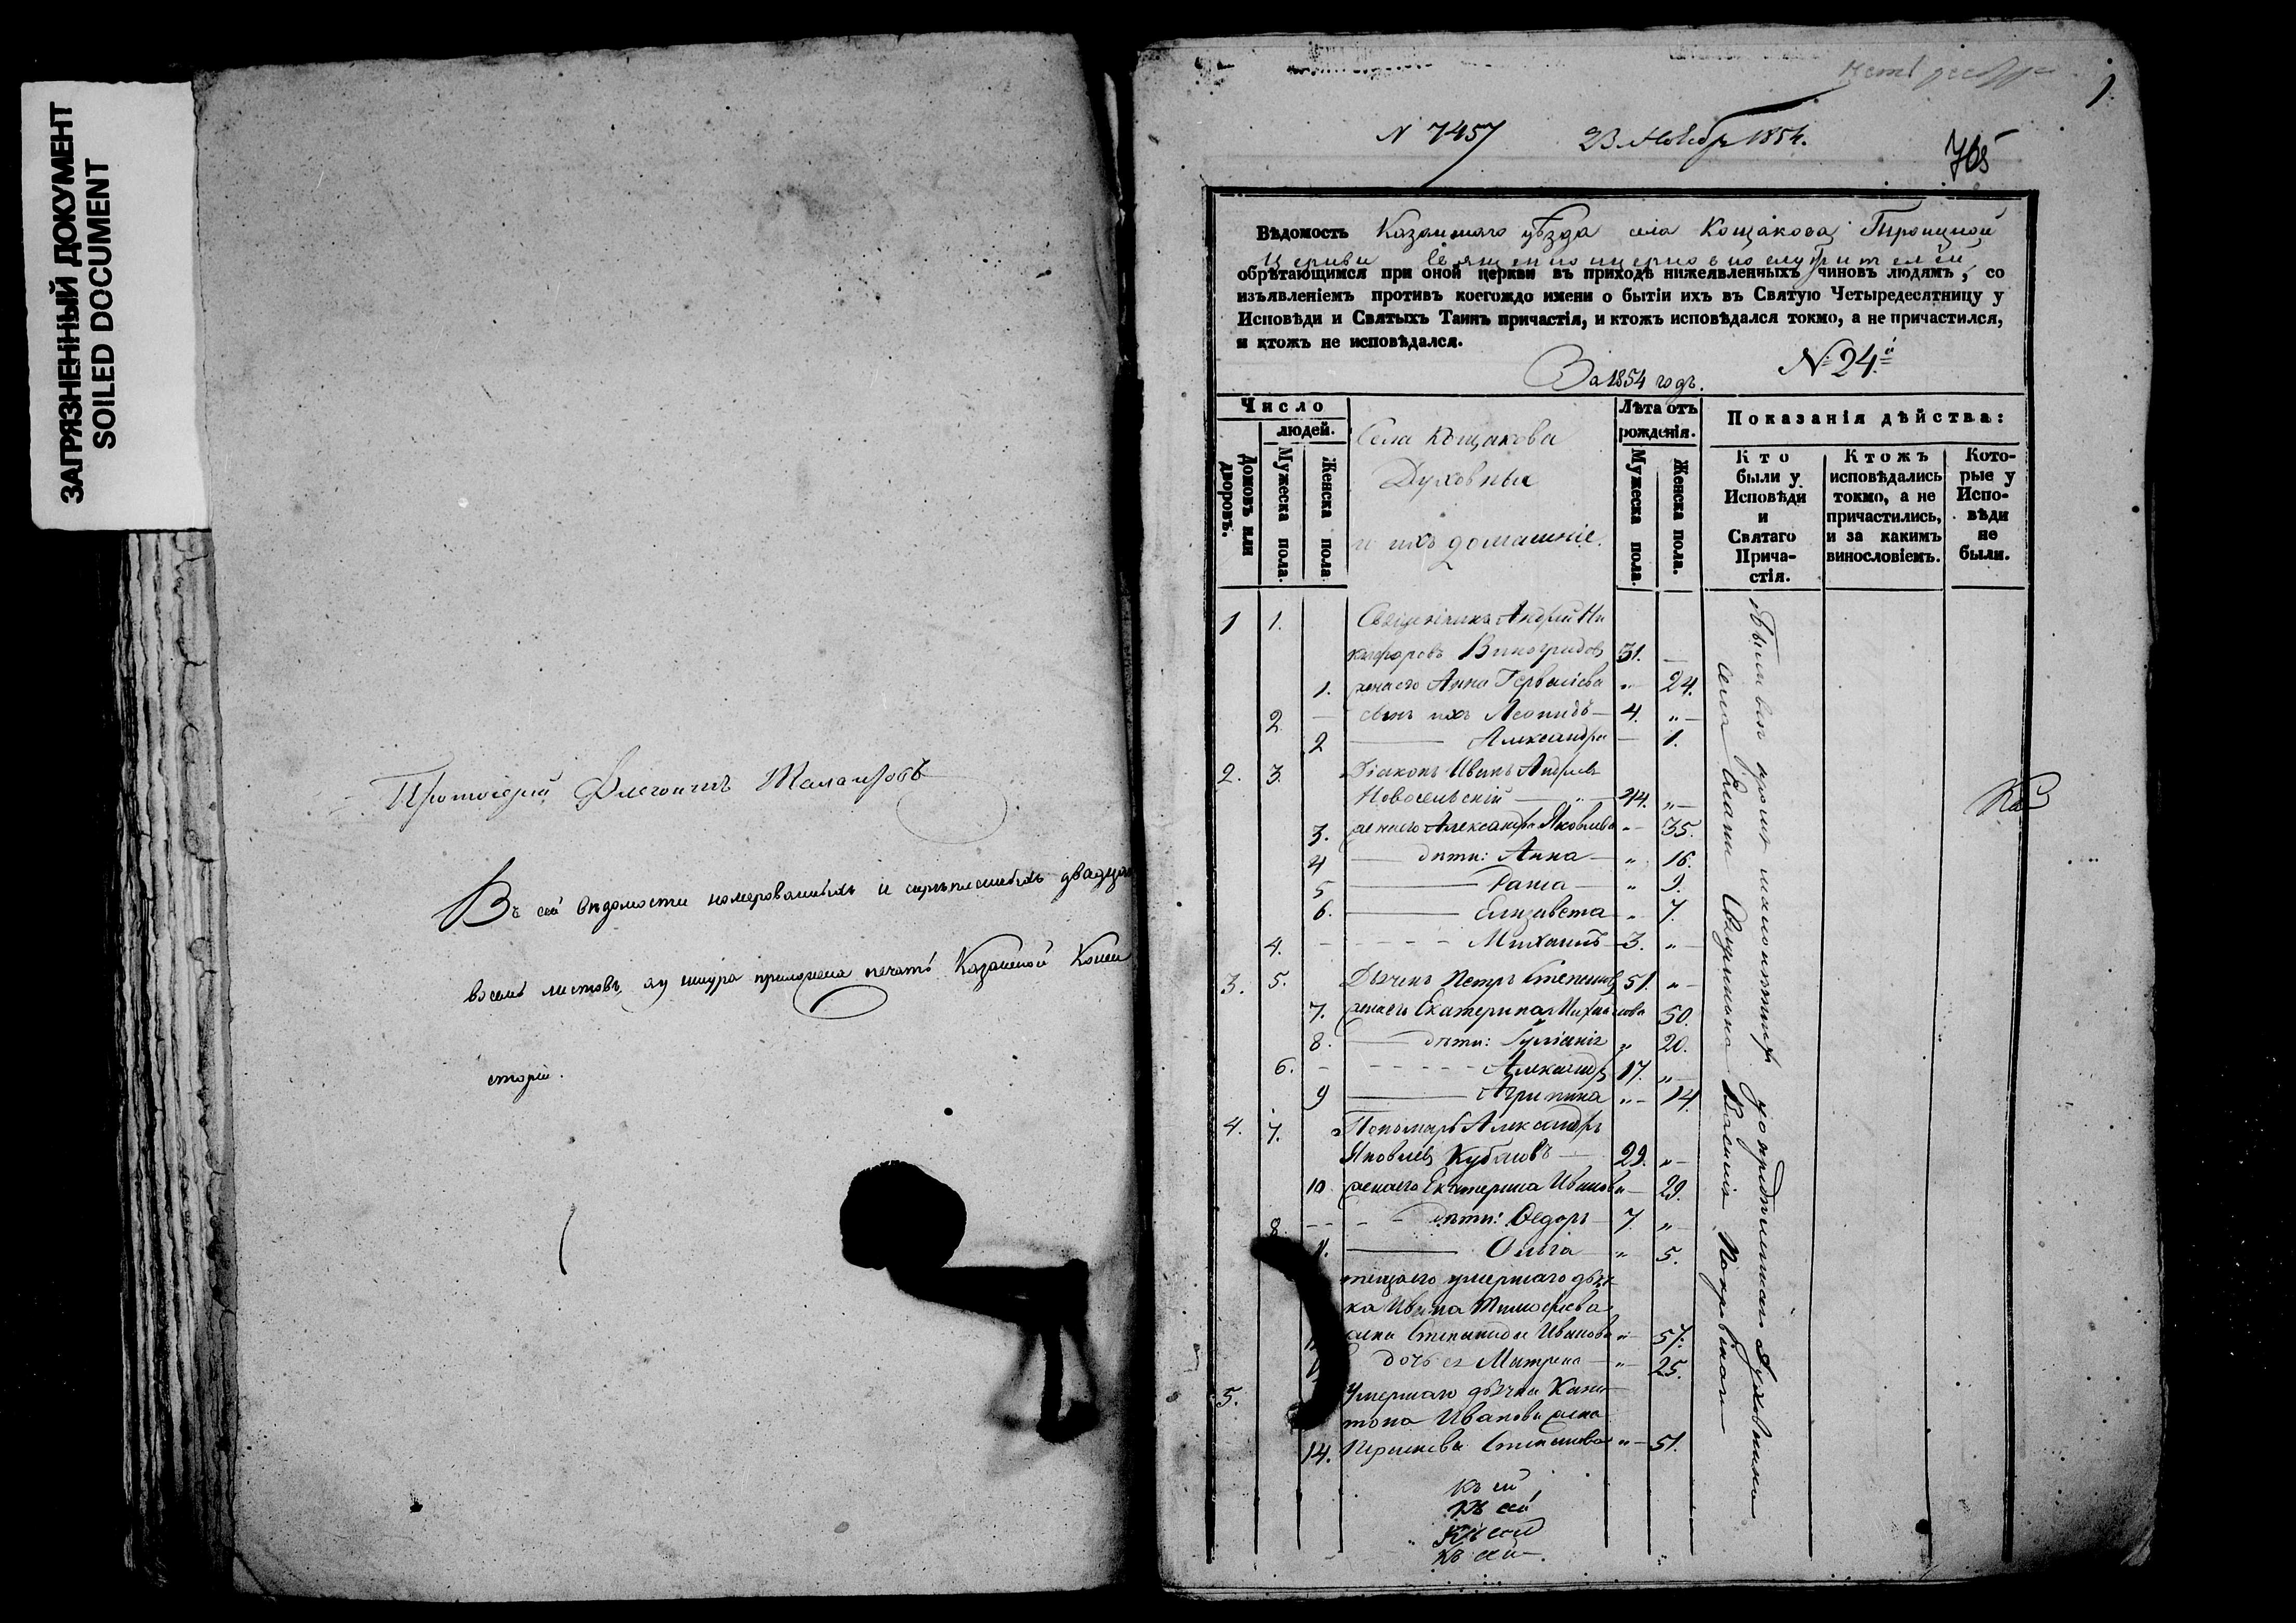 ЗАГРЯЗНЕННЫЙ ДОКУМЕНТ
SOILED DOCUMENT
Протоіерей
Въ сей вѣдомости номерованныхъ и скрѣпленныхъ двадцать
восемь листовъ, у шнура приложена печать Казанской Конси
сторіи.
1.
N 7457 23 Ноябр 1854.
705
Вѣдомость Казанскаго уѣзда села Кощакова Троицкой
Церкви Священноцерковнослужителей
обрѣтающимся при оной церкви въ приходѣ нижеявленныхъ чиновъ людямъ, со
изъявленіемъ противъ коегождо имени о бытіи ихъ въ Святую Четыредесятницу у
Исповѣди и Святыхъ Таинъ причастія, и ктожъ исповѣдался токмо, а не причастился,
и ктожъ не исповѣдался.
За 1854 годъ. № 24й
Число
людей.
Домовъ или дворовъ.
Мужеска пола.
Женска пола
Села Кощакова
Духовные
и ихъ домашніе.
Лѣта отъ
рожденія.
Мужеска пола.
Женска пола.
Показанія дѣйства:
Кто
были у
Исповѣди
и
Святаго
Прича-
стія.
Ктожъ
исповѣдались
токмо, а не
причастились,
и за какимъ
винословіемъ.
Кото-
рые у
Испо-
вѣди
не
были.
1 1. Священникъ Андрей Ни
кифоровъ Виноградовъ 31. —
1. жена его Анна Гервасіева „ — 24.
2 — сынъ ихъ Леонидъ — 4. „ —
2 — Александра — 1.
2. 3. Діаконъ Иванъ Андреевъ
Новосельскій — „ — 44. „ —
3. жена его Александра Яковлева „ — 35.
4 — дѣти: Анна — „ 16.
5 — Раиса — „ 9.
6. — Елизавета — „ 7.
4. - - - - - Михаилъ — 3. „ —
3. 5. Дьячекъ Петръ Степановъ 51. „ —
7. жена его Екатерина Михайлова 50.
8. — дѣти: Іуліанія „ 20.
6. - - - - - Александръ 17. „ —
9 — Агрипина „ — 14.
4. 7. Пономарь Александръ
Яковлевъ — 29. „ —
10 жена его Екатерина Иванова — 29.
8. - - - дѣти: Ѳедоръ — 7. „ —
11. — Ольга — „ 5.
теща его умершаго дьяч
ка Ивана Тимоѳеева
жена Степанида Иванова „ 57.
дочь ея Матрена — „ — 25.
5. Умершаго дьячка Капи
тона Иванова жена
14. Параскева Степанова „ — 51.
Къ сей
Къ сей
Къ сей
Къ сей
села Священника Василія Покровскаго